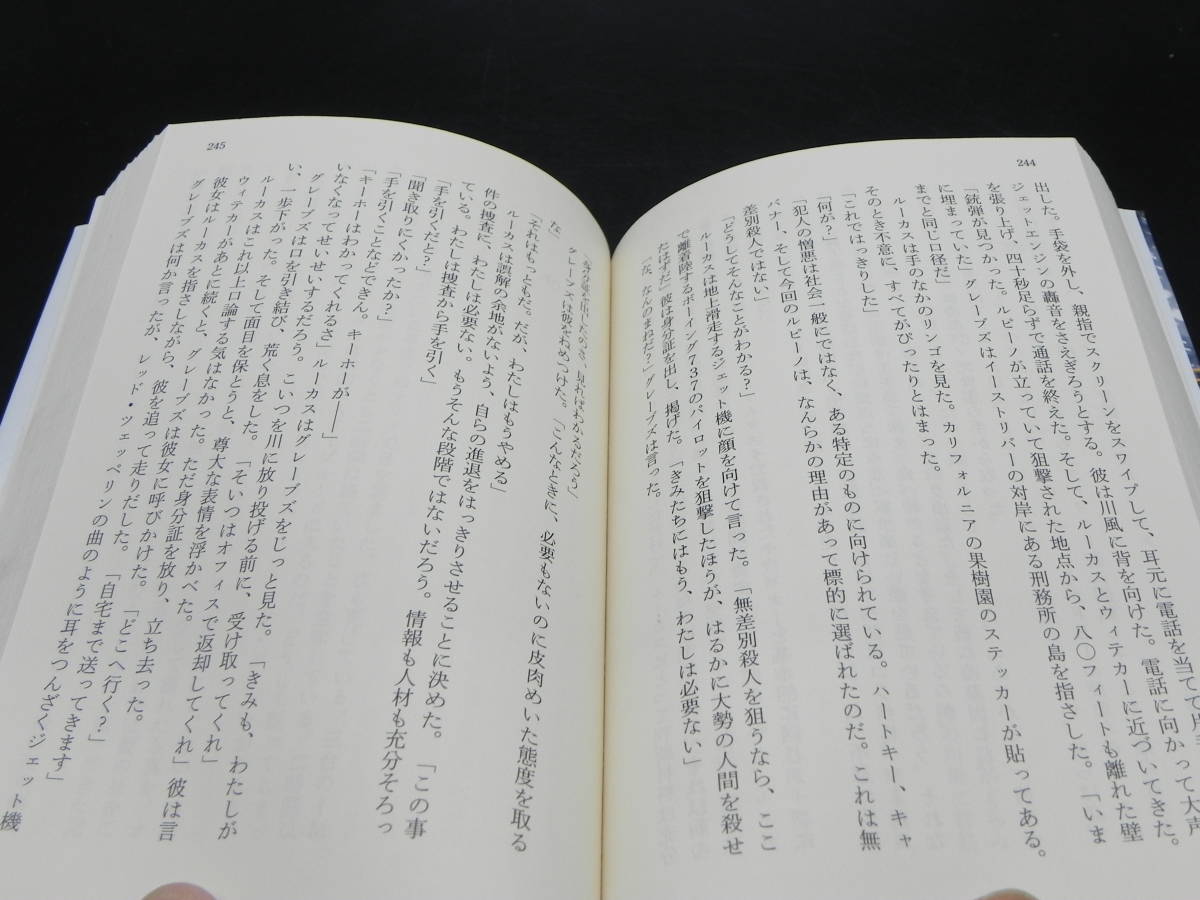 244
出した。手袋を外し、親指でスクリーンをスワイプして、耳元に電話を当てて
ジェットエンジンの轟音をさえぎろうとする。彼は川風に背を向けた。電話に向かって大声
を張り上げ、四十秒足らずで通話を終えた。そして、ルーカスとウィテカーに近づいてきた。
「銃弾が見つかった。ルピーノが立っていて狙撃された地点から、八〇フィートも離れた壁
に埋まっていた」グレーブズはイーストリバーの対岸にある刑務所の島を指さした。「いま
までと同じ口径だ」
ルーカスは手のなかのリンゴを見た。カリフォルニアの果樹園のステッカーが貼ってある。
そのとき不意に、すべてがぴったりとはまった。
「これではっきりした」
「何が？」
「犯人の憎悪は社会一般にではなく、ある特定のものに向けられている。ハートキー、キャ
バナー、そして今回のルピーノは、なんらかの理由があって標的に選ばれたのだ。これは無
差別殺人ではない」
「どうしてそんなことがわかる？」
ルーカスは地上滑走するジェット機に顔を向けて言った。「無差別殺人を狙うなら、ここ
で離着陸するボーイング737のパイロットを狙撃したほうが、はるかに大勢の人間を殺せ
たはずだ」彼は身分証を出し、掲げた。「きみたちにはもう、わたしは必要ない」
「な、なんのまねだ？」グレーブズは言った。
245
「身分証を出したのさ、見ればわかるだろう」
グレーブズは彼をねめつけた。「こんなときに、必要もないのに皮肉めいた態度を取る
な」
「それはもっともだ。だが、わたしはもうやめる」
ルーカスは誤解の余地がないよう、自らの進退をはっきりさせることに決めた。「この事
件の捜査に、わたしは必要ない。もうそんな段階ではないだろう。情報も人材も充分そろっ
ている。わたしは捜査から手を引く」
「手を引くだと？」
「聞き取りにくかったか？」
「手を引くことなどできん。キーホーが――」
「キーホーはわかってくれるさ」ルーカスはグレーブズをじっと見た。「きみも、わたしが
いなくなってせいせいするだろう。こいつを川に放り投げる前に、受け取ってくれ」
グレーブズは口を引き結び、荒く息をした。「そいつはオフィスで返却してくれ」彼は言
い、一歩下がった。そして面目を保とうと、尊大な表情を浮かべた。
ルーカスはこれ以上口論する気はなかった。ただ身分証を放り、立ち去った。
ウィテカーがあとに続くと、グレーブズは彼女に呼びかけた。「どこへ行く？」
彼女はルーカスを指さしながら、彼を追って走りだした。「自宅まで送ってきます」
グレーブズは何か言ったが、レッド・ツェッペリンの曲のように耳をつんざくジェット機